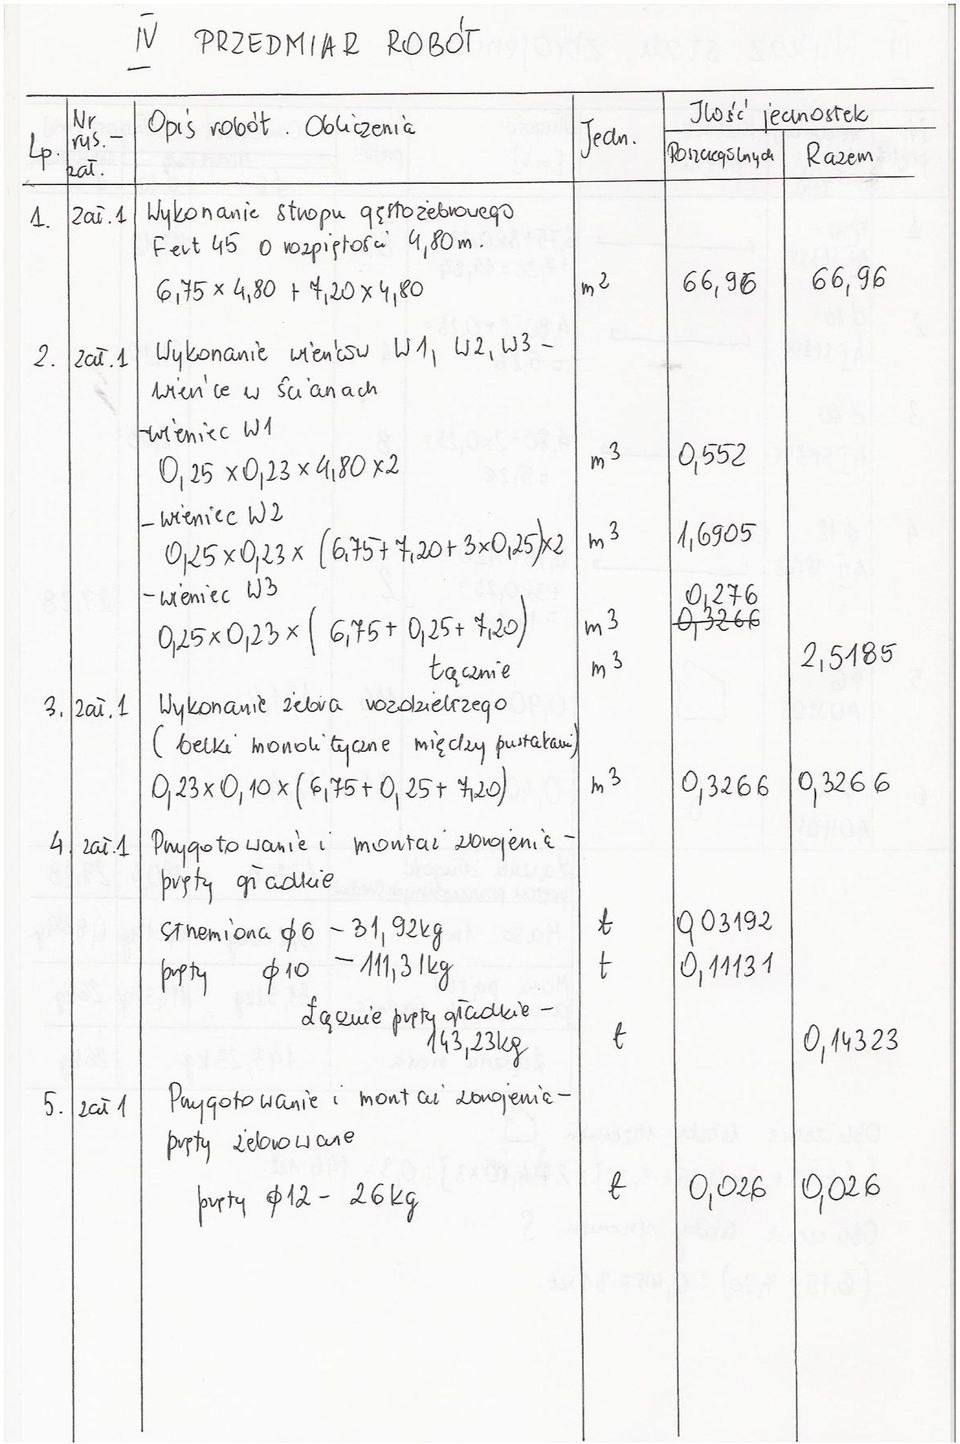 IV PRZEDMIAR ROBÓT
Lp. Nr rys. - zał. Opis robót. Obliczenia Jedn. Ilość jednostek
Poszczególnych Razem
1. zał.1 Wykonanie stropu gęstożebrowego
Fert 45 o rozpiętości 4,80m.
6,75 x 4,80 + 7,20 x 4,80 m2 66,96 66,96
2. zał.1 Wykonanie wieńców W1, W2, W3 -
wieńce w ścianach
- wieniec W1
0,25 x 0,23 x 4,80 x 2 m3 0,552
- wieniec W2
0,25 x 0,23 x (6,75 + 7,20 + 3x0,25)x2 m3 1,6905
- wieniec W3 0,276
0,25 x 0,23 x (6,75 + 0,25 + 7,20) m3 0,3266
Łącznie m3 2,5185
3. zał.1 Wykonanie żebra rozdzielczego
(belki monolityczne między pustakami)
0,23 x 0,10 x (6,75 + 0,25 + 7,20) m3 0,3266 0,3266
4. zał.1 Przygotowanie i montaż zbrojenia -
pręty gładkie
strzemiona ϕ6 - 31,92kg t 0,03192
pręty ϕ10 - 111,31kg t 0,11131
Łącznie pręty gładkie -
143,23kg t 0,14323
5. zał 1 Przygotowanie i montaż zbrojenia -
pręty żebrowane
pręty ϕ12 - 26kg t 0,026 0,026